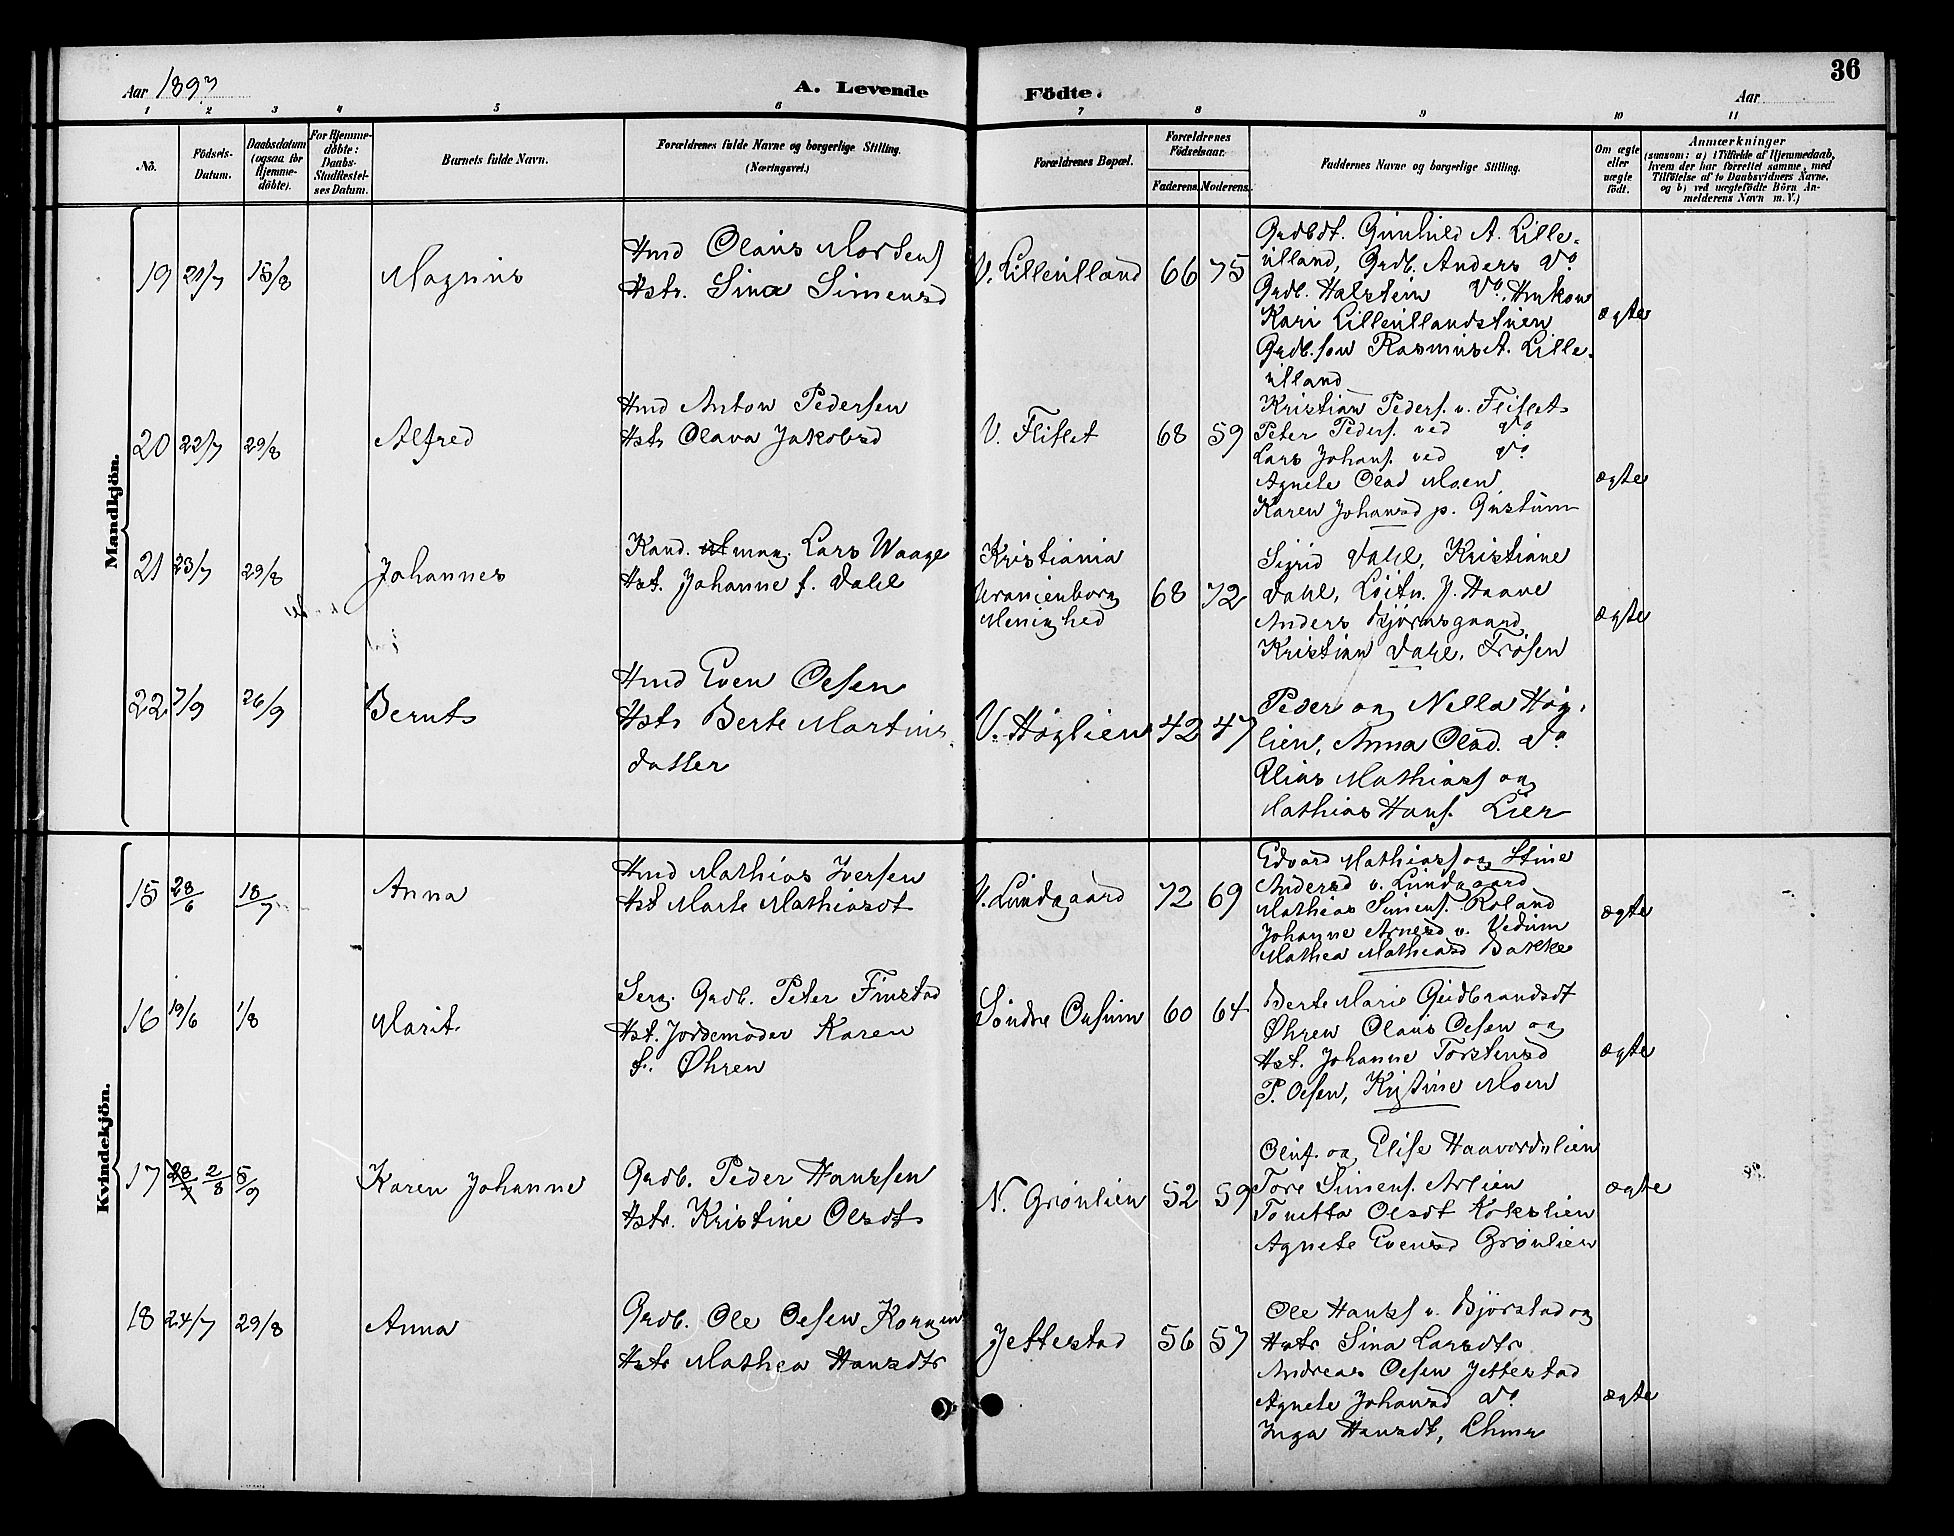 36
Aar 1893
A. Levende Födte.
Aar
1 2 3 4 5 6 7 8 9 10 11
No.
Födsels-Datum.
Daabsdatum (ogsaa for Hjemme-döbte).
For Hjemme-döbte: Daabs-Stadfæstel-ses Datum.
Barnets fulde Navn.
Forældrenes fulde Navne og borgerlige Stilling. (Næringsvei.)
Forældrenes Bopæl.
Forældrenes Födselsaar.
Faderens. Moderens.
Faddernes Navne og borgerlige Stilling.
Om ægte eller uægte födt.
Anmærkninger
(saasom: a) i Tilfælde af Hjemmedaab, hvem der har forrettet samme, med Tilföielse af to Daabsvidners Navne, og b) ved uægtefödte Börn An-melderens Navn m. V.)
Mandkjön.
19 21/7 15/8 Magnus
Hmd Olaus Mortens
Hstr. Sina Simensd
V. Lilleulland 66 75
Grdbdt. Gunhild A. Lille-
ulland, Grdb. Anders Do
Grdb. Halstein Do, Hmkon
Kari Lilleullandstuen
Grdb.søn Rasmus A. Lille-
ulland
ægte
20 22/7 29/8 Alfred
Hmd Anton Pedersen
Hstr Olava Jakobsd
V. Fliflet 68 59
Kristian Peders. v. Fliflet
Peter Peders. ved Do
Lars Johans. ved Do
Agnete Olsd Moen
Karen Johansd p. Gustum
ægte
21 23/7 29/8 Johannes
Kand. mag. Lars Waage
Hst. Johanne f. Dahl
Kristiania
Uranienborg
Menighed
68 72
Sigrid Dahl, Kristiane
Dahl, Löitn. J. Haave
Anders Bjørnsgaard,
Kristian Dahl, Frøsen
ægte
22 7/9 26/9 Bernt
Hmd Even Olsen
Hstr Berte Martins
datter
V. Høglien 42 47
Peder og Nella Høg-
lien, Anna Olsd. Do
Elias Mathias og
Mathias Hans. Lier
Kvindekjön.
15 28/6 18/7 Anna
Hmd Mathias Iversen
Hst Marte Mathiasdt
V. Lundgaard 72 69
Edvard Mathias og Stine
Andersd v. Lundgaard
Mathias Simens. Roland
Johanne Arnesd v. Vedum
Mathea Mathiasd Bakke
ægte
16 19/6 1/8 Marit
Serg. Grdb. Peter Finstad
Hst. Jordemoder Karen
f. Øhren
Søndre Onsum 60 64
Berte Marie Gudbrandsdt
Øhren Olaus Olsen og
Hst. Johanne Torstensd
P. Olsen, Kristine Moen
ægte
17 28/7 2/8 5/9 Karen Johanne
Grdb. Peder Hanssen
Hstr. Kristine Olsdt
N. Grønlien 52 59
Oluf og Elise Haavordslien
Tore Simens. Arlien
Tonetta Olsdt Kokslien
Agnete Evensd Grønlien
ægte
18 24/7 29/8 Anna
Grdb. Ole Olsen Korgen
Hstr Mathea Hansdtr
Jettestad 56 57
Ole Hanss v. Bjørstad og
Hstr Sina Larsdtr
Andreas Olsen Jettestad
Agnete Johansd Do
Inga Hansdt,
ægte